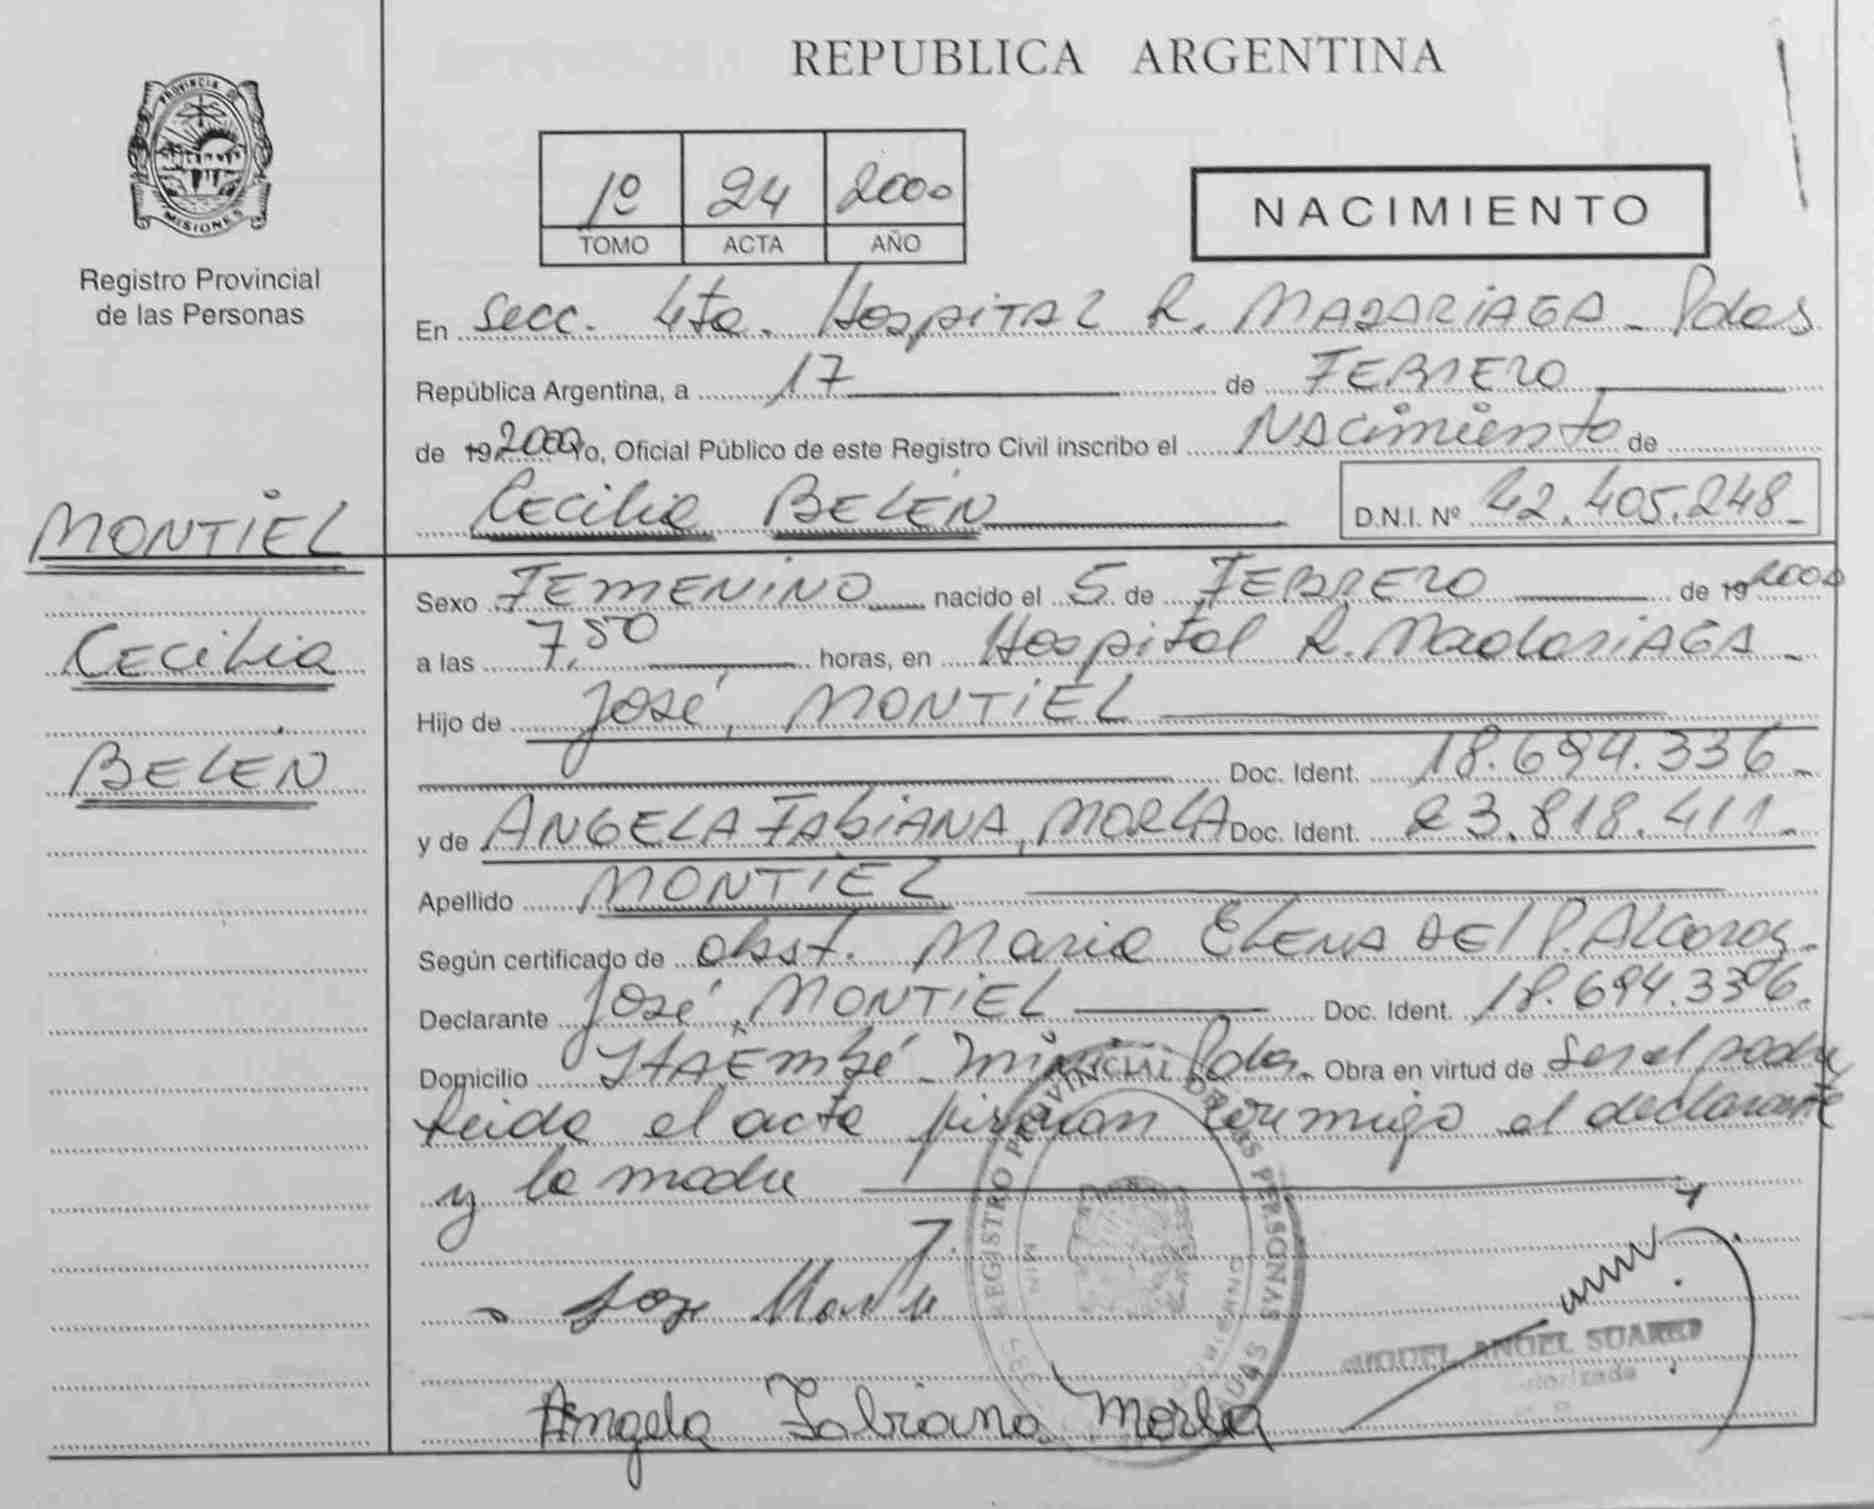 REPUBLICA ARGENTINA
PROVINCIA DE
MISIONES
Registro Provincial
de las Personas
1º 24 2000
TOMO ACTA AÑO
NACIMIENTO
En Secc. 4ta. Hospital R. MADARIAGA - Pdas
República Argentina, a 17 de FEBRERO
de 19 2000 Yo, Oficial Público de este Registro Civil inscribo el NACimiento de
Cecilia BELÉN D.N.I. Nº 42.405.248-
MONTIEL
Cecilia
BELÉN
Sexo FEMENINO nacido el 5 de FEBRERO de 19 2000
a las 7,50 horas, en Hospital R. MadariAGA -
Hijo de José, MONTIEL
Doc. Ident. 18.694.336-
y de ANGELA FABIANA, MORLA Doc. Ident. 23.818.411-
Apellido MONTIEL
Según certificado de obst. Maria ELENA DEl P. Alcaraz-
Declarante José, MONTIEL Doc. Ident. 18.694.336.
Domicilio Itaembé - Mini Pdas. Obra en virtud de Ser el padre
Leida el acta firman conmigo el declarante
y la madre
REGISTRO PROVINCIAL DE LAS PERSONAS
Angela Fabiana Morla
MIGUEL ANGEL SUAREZ